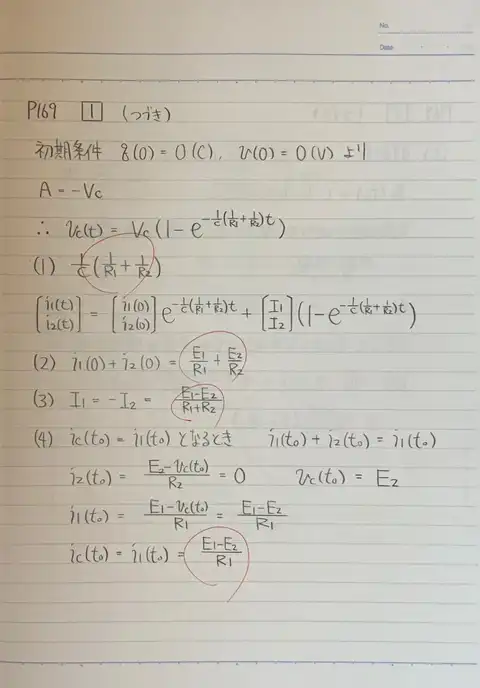 No.
Date
P169 1 (つづき)
初期条件 q(0) = 0(C), v(0) = 0(V) より
A = -Vc
∴ vc(t) = Vc(1 - e^{-\frac{1}{C}(\frac{1}{R1}+\frac{1}{R2})t})
(1) \frac{1}{C}(\frac{1}{R1}+\frac{1}{R2})
[i1(t) i2(t)] = [i1(0) i2(0)] e^{-\frac{1}{C}(\frac{1}{R1}+\frac{1}{R2})t} + [I1 I2](1 - e^{-\frac{1}{C}(\frac{1}{R1}+\frac{1}{R2})t})
(2) i1(0) + i2(0) = \frac{E1}{R1} + \frac{E2}{R2}
(3) I1 = -I2 = \frac{E1-E2}{R1+R2}
(4) ic(t0) = i1(t0) となるとき i1(t0) + i2(t0) = i1(t0)
i2(t0) = \frac{E2-vc(t0)}{R2} = 0 vc(t0) = E2
i1(t0) = \frac{E1-vc(t0)}{R1} = \frac{E1-E2}{R1}
ic(t0) = i1(t0) = \frac{E1-E2}{R1}